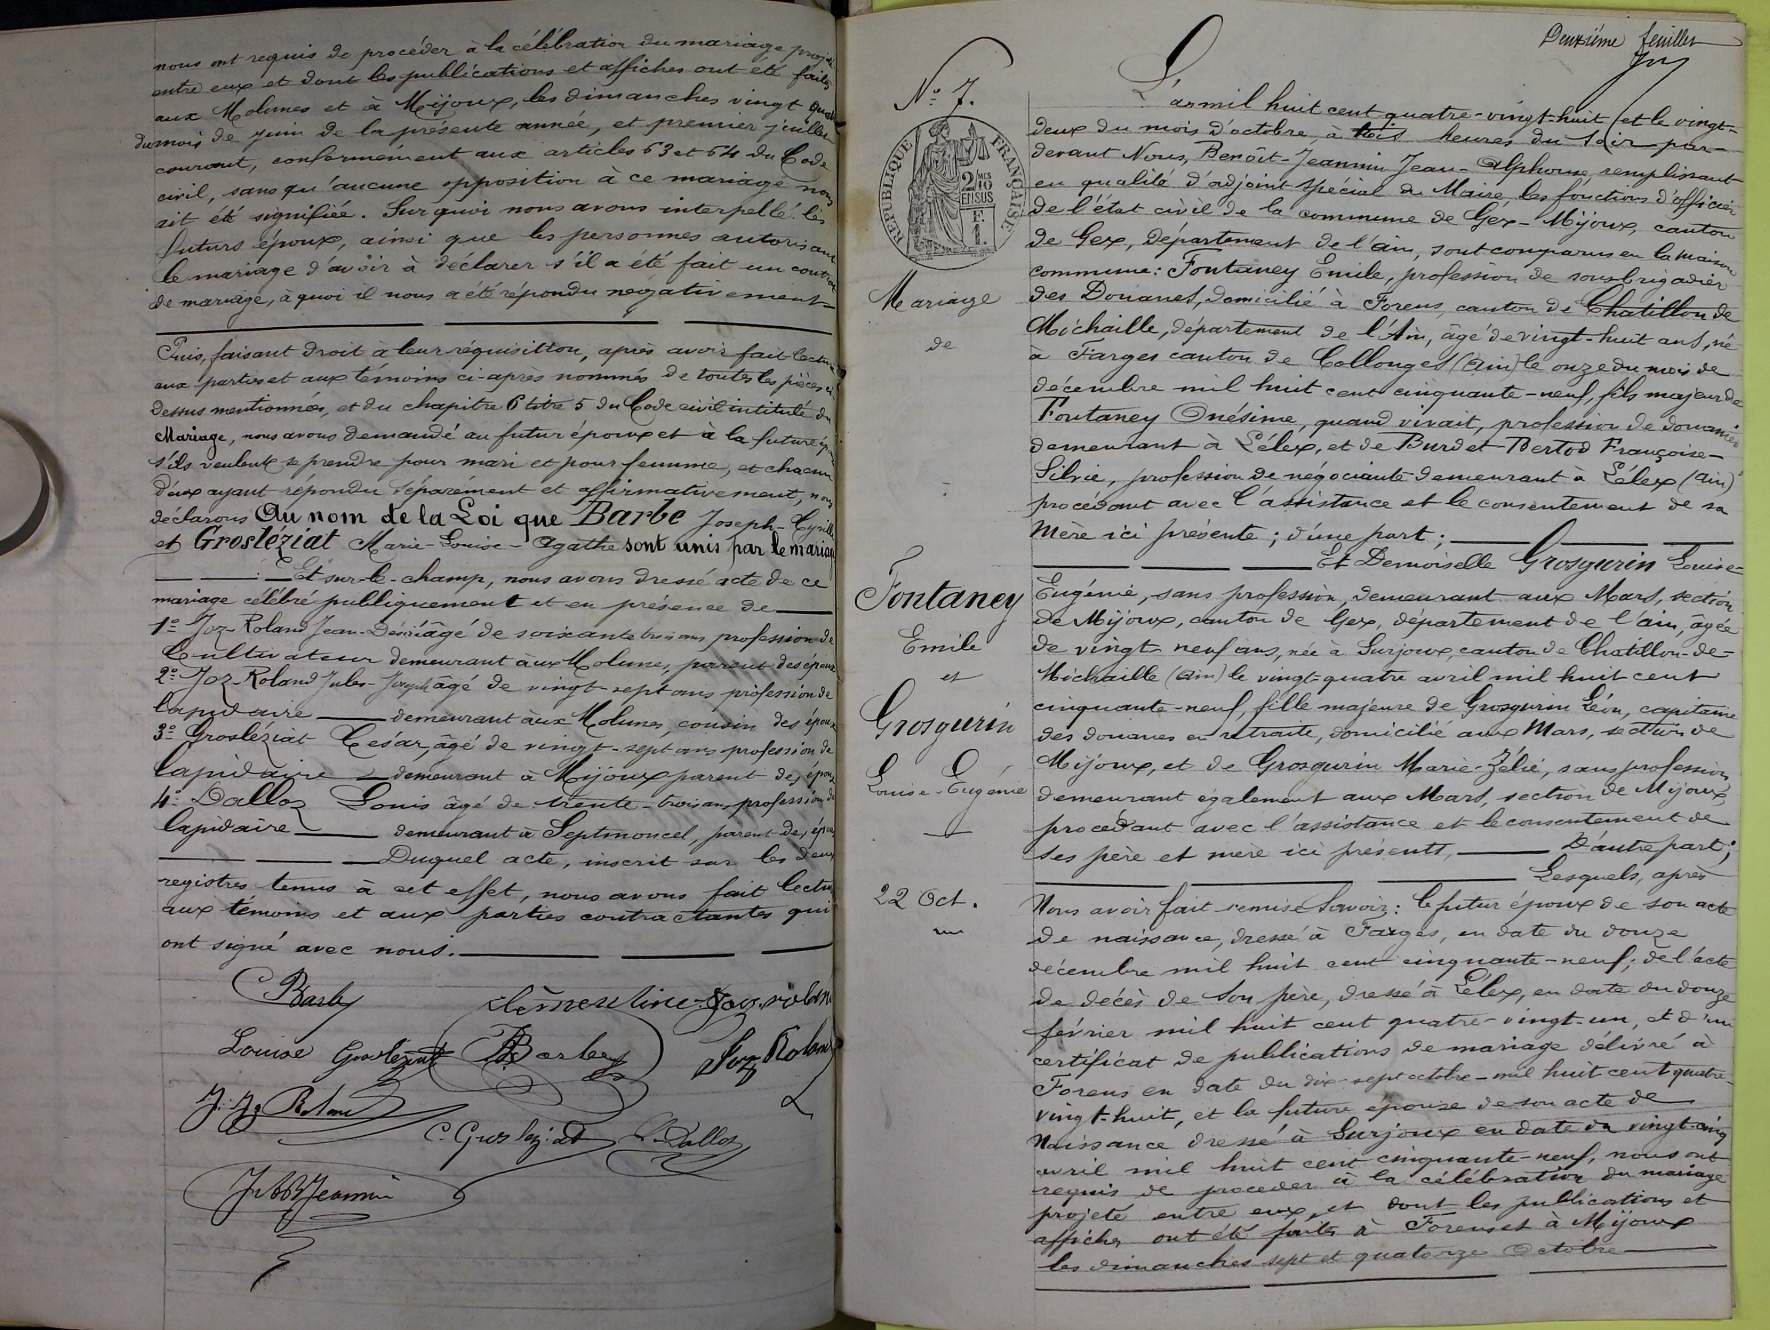 nous ont requis de procéder à la célébration du mariage projeté
entre eux et dont les publications et affiches ont été faites
aux Molunes et à Mijoux, les dimanches vingt quatre
du mois de juin de la présente année, et premier juillet
courant, conformément aux articles 63 et 64 du Code
civil, sans qu'aucune opposition à ce mariage nous
ait été signifiée. Sur quoi nous avons interpellé les
futurs époux, ainsi que les personnes autorisant
le mariage d'avoir à déclarer s'il a été fait un contrat
de mariage, à quoi il nous a été répondu negativement
Puis, faisant droit à leur réquisition, après avoir fait lecture
aux parties et aux témoins ci-après nommés de toutes les pièces ci
dessus mentionnées, et du chapitre 6 titre 5 du Code civil intitulé du
Mariage, nous avons demandé au futur époux et à la future épouse
s'ils veulent se prendre pour mari et pour femme, et chacun
d'eux ayant répondu séparément et affirmativement, nous
déclarons Au nom de la Loi que Barbe Joseph-Cyrille
et Grosléziat Marie-Louise-Agathe sont unis par le mariage
Et sur-le-champ, nous avons dressé acte de ce
mariage célébré publiquement et en présence de
1º Joz-Roland Jean-Désiré âgé de soixante trois ans profession de
Cultivateur demeurant aux Molune, parent des époux
2º Joz-Roland Jules-Joseph âgé de vingt-sept ans profession de
lapidaire demeurant aux Molunes, cousin des époux
3º Grosléziat César, âgé de vingt-sept ans profession de
lapidaire demeurant à Mijoux parent des époux
4º Dalloz Louis âgé de trente-trois ans, profession de
lapidaire demeurant à Septmoncel, parent des époux
Duquel acte, inscrit sur les deux
registres tenus à cet effet, nous avons fait lecture
aux témoins et aux parties contractantes qui
ont signé avec nous.
C Barbe
clémentine Joz roland
Louise Grosleziat
Barbe
Joz Roland
J. Jz Roland
C. Grosleziat
L. Dalloz
Jeannin
Deuxième feuillet
Nº 7.
RÉPUBLIQUE FRANÇAISE
2 MES 10 EN SUS
F. 1.
Mariage
de
Fontaney
Emile
et
Grosgurin
Louise-Eugénie
22 Oct.
L'an mil huit cent quatre-vingt-huit et le vingt-
deux du mois d'octobre, à trois heures du soir par-
devant Nous, Benôit-Jeannin Jean-Alphonse remplissant
en qualité d'adjoint spécial du Maire, les fonctions d'officier
de l'état civil de la commune de Gex-Mijoux, canton
de Gex, Département de l'ain, sont comparus en la maison
commune: Fontaney Emile, profession de sous-brigadier
des Douanes, domicilié à Forens, canton de Chatillon de
Michaille, département de l'Ain, âgé de vingt-huit ans, né
à Farges canton de Collonges (ain) le onze du mois de
décembre mil huit cent cinquante-neuf, fils majeur de
Fontaney Onésime, quand vivait, profession de douanier
demeurant à Lélex, et de Burdet-Bertod Françoise-
Silvie, profession de négociante demeurant à Lélex (ain)
procédant avec l'assistance et le consentement de sa
mère ici présente; d'une part;
Et Demoiselle Grosgurin Louise-
Eugénie, sans profession, demeurant aux Mars, section
de Mijoux, canton de Gex, département de l'ain, agée
de vingt-neuf ans, née à Surjoux, canton de Chatillon-de-
Michaille (ain) le vingt-quatre avril mil huit cent
cinquante-neuf, fille majeure de Grosgurin Léon, capitaine
des douanes en retraite, domicilié aux Mars, section de
Mijoux, et de Grosgurin Marie-Zélié, sans profession
demeurant également aux Mars, section de Mijoux,
procédant avec l'assistance et le consentement de
ses père et mère ici présents, D'autre part;
Lesquels, après
Nous avoir fait remise Savoir: le futur époux de son acte
de naissance, dressé à Farges, en date du douze
décembre mil huit cent cinquante-neuf; de l'acte
de décès de son père, dressé à Lélex, en date du douze
février mil huit cent quatre-vingt-un, et d'un
certificat de publications de mariage délivré à
Forens en date du dix-sept octobre-mil huit cent quatre-
vingt-huit, et la future épouse de son acte de
Naissance dressé à Surjoux en date du vingt-cinq
avril mil huit cent cinquante-neuf, nous ont
requis de proceder à la célébration du mariage
projeté entre eux, et dont les publications et
affiches ont été faites à Forens et à Mijoux
les dimanches sept et quatorze Octobre